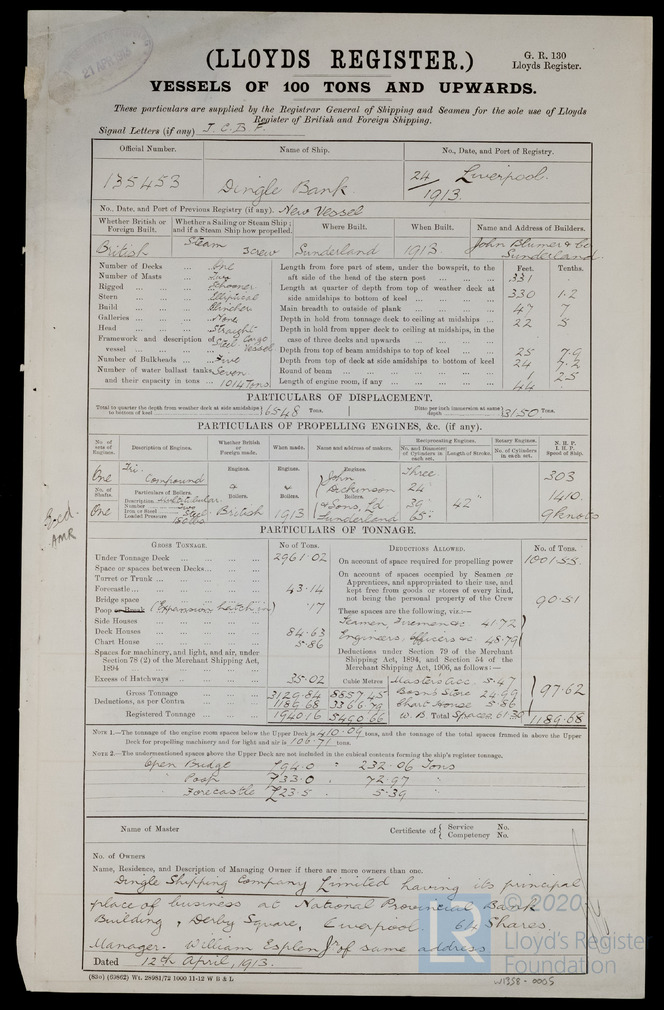 21 APR 1913
(LLOYDS REGISTER.)
G. R. 130
Lloyds Register.
VESSELS OF 100 TONS AND UPWARDS.
These particulars are supplied by the Registrar General of Shipping and Seamen for the sole use of Lloyds
Register of British and Foreign Shipping.
Signal Letters (if any) J.C.B.F.
Official Number. Name of Ship. No., Date, and Port of Registry.
135453 Dingle Bank. 24/1913. Liverpool.
No., Date, and Port of Previous Registry (if any). New Vessel
Whether British or Foreign Built. Whether a Sailing or Steam Ship; and if a Steam Ship how propelled. Where Built. When Built. Name and Address of Builders.
British Steam Screw Sunderland 1913. John Blumer & Co Sunderland.
Number of Decks ... One
Number of Masts ... Two
Rigged ... Schooner
Stern ... Elliptical
Build ... Clincher
Galleries ... None
Head ... Straight
Framework and description of vessel ... Steel Cargo Vessel
Number of Bulkheads ... Five
Number of water ballast tanks Seven
and their capacity in tons ... 1014 Tons
Feet. Tenths.
Length from fore part of stem, under the bowsprit, to the
aft side of the head of the stern post ... 331 .
Length at quarter of depth from top of weather deck at
side amidships to bottom of keel ... 330 1.2
Main breadth to outside of plank ... 47 7
Depth in hold from tonnage deck to ceiling at midships ... 22 5
Depth in hold from upper deck to ceiling at midships, in the
case of three decks and upwards ...
Depth from top of beam amidships to top of keel ... 25 7.9
Depth from top of deck at side amidships to bottom of keel 24 7.2
Round of beam ... 1 2.5
Length of engine room, if any ... 44 .
PARTICULARS OF DISPLACEMENT.
Total to quarter the depth from weather deck at side amidships to bottom of keel 6548 Tons. Ditto per inch immersion at same depth 31.50 Tons.
PARTICULARS OF PROPELLING ENGINES, &c. (if any).
No. of sets of Engines. Description of Engines. Whether British or Foreign made. When made. Name and address of makers. Reciprocating Engines. Rotary Engines. N. H. P. I. H. P. Speed of Ship.
No. and Diameter of Cylinders in each set. Length of Stroke. No. of Cylinders in each set.
One Tri Compound Engines. Engines. Engines. Three 303
No. of Shafts. Particulars of Boilers. & Boilers. & Boilers. John Dickinson Boilers. 24" 1410.
Description Multitubular
Number Two
Iron or Steel Steel
Loaded Pressure 180 lbs
One British 1913 & Sons, Ld Sunderland 39" 65" 42" 9 knots
PARTICULARS OF TONNAGE.
GROSS TONNAGE. No. of Tons. DEDUCTIONS ALLOWED. No. of Tons.
Under Tonnage Deck ... 2961.02
Space or spaces between Decks ...
Turret or Trunk ...
Forecastle ... 43.14
Bridge space
Poop or Break (Expansion hatch in) .17
Side Houses
Deck Houses ... 84.63
Chart House ... 5.86
Spaces for machinery, and light, and air, under
Section 78 (2) of the Merchant Shipping Act,
1894 ...
Excess of Hatchways ... 35.02
Cubic Metres
Gross Tonnage ... 3129.84 8857.45
Deductions, as per Contra ... 1189.68 3366.79
Registered Tonnage ... 1940.16 5490.66
On account of space required for propelling power 1001.55
On account of spaces occupied by Seamen or
Apprentices, and appropriated to their use, and
kept free from goods or stores of every kind,
not being the personal property of the Crew 90.51
These spaces are the following, viz.:—
Seamen, Firemen &c 41.72
Engineers, Officers &c 48.79
Deductions under Section 79 of the Merchant
Shipping Act, 1894, and Section 54 of the
Merchant Shipping Act, 1906, as follows:—
Master's acc. 5.47
Bosn's Store 24.99
Chart House 5.86
W. B. Spaces 61.30
97.62
Total 1189.68
NOTE 1.—The tonnage of the engine room spaces below the Upper Deck is 410.09 tons, and the tonnage of the total spaces framed in above the Upper
Deck for propelling machinery and for light and air is 106.71 tons.
NOTE 2.—The undermentioned spaces above the Upper Deck are not included in the cubical contents forming the ship's register tonnage.
Open Bridge 94.0 " 232.06 Tons
" Poop 33.0 " 72.97 "
" Forecastle 23.5 " 5.39 "
Name of Master Certificate of Service No. Competency No.
No. of Owners
Name, Residence, and Description of Managing Owner if there are more owners than one.
Dingle Shipping Company Limited having its principal
place of business at National Provincial Bank
Building, Derby Square, Liverpool. 64 Shares.
Manager. William Esplen Jr. of same address
Dated 12th April, 1913.
(83o) (63862) Wt. 28981/72 1000 11-12 W B & L
© 2020
LR
Lloyd's Register
Foundation
W1358-0005